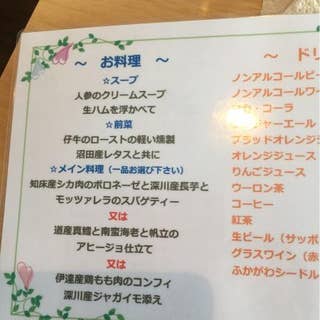 ～ お料理 ～
☆スープ
人参のクリームスープ
生ハムを浮かべて
☆前菜
仔牛のローストの軽い燻製
沼田産レタスと共に
☆メイン料理（一品お選び下さい）
知床産シカ肉のボロネーゼと深川産長芋と
モッツァレラのスパゲティー
又は
道産真鱈と南蛮海老と帆立の
アヒージョ仕立て
又は
伊達産鶏もも肉のコンフィ
深川産ジャガイモ添え
～ ドリ
ノンアルコールビー
ノンアルコールワ
コーラ
ジャーエール
ブラッドオレンジ
オレンジジュース
りんごジュース
ウーロン茶
コーヒー
紅茶
生ビール（サッポ
グラスワイン（赤
ふかがわシードル